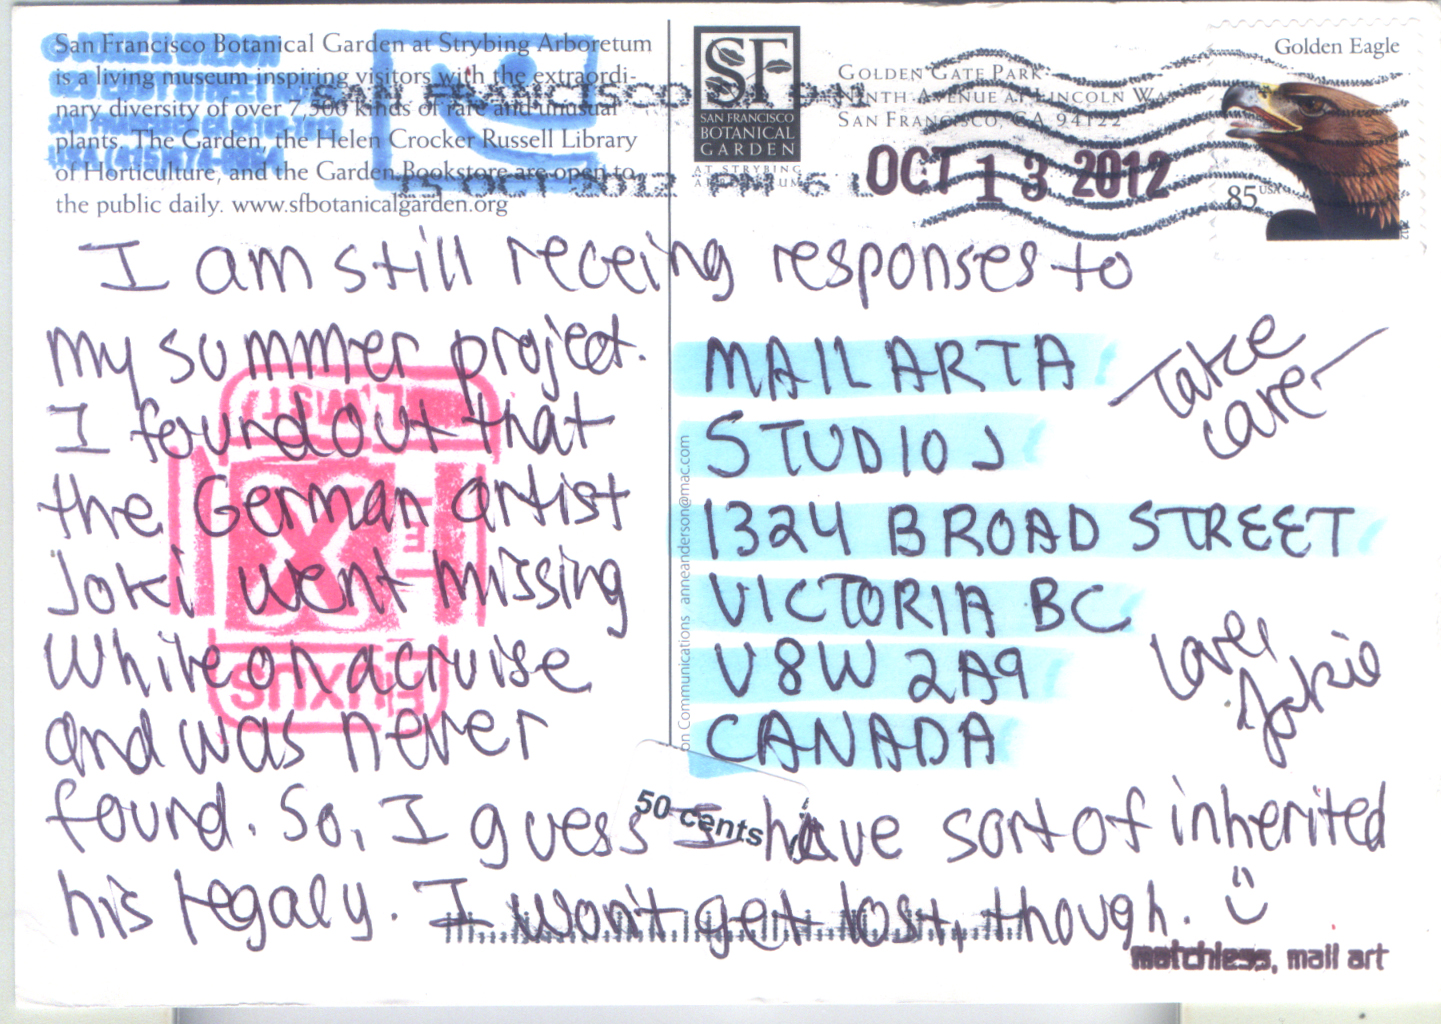 San Francisco Botanical Garden at Strybing Arboretum
is a living museum inspiring visitors with the extraordi-
nary diversity of over 7,500 kinds of rare and unusual
plants. The Garden, the Helen Crocker Russell Library
of Horticulture, and the Garden Bookstore are open to
the public daily. www.sfbotanicalgarden.org
SAN FRANCISCO CA
15 OCT 2012 PM 6 L
SF
SAN FRANCISCO
BOTANICAL
GARDEN
AT STRYBING
ARBORETUM
Golden Gate Park
Ninth Avenue at Lincoln Way
San Francisco, CA 94122
OCT 13 2012
Golden Eagle
85 USA
2012
I am still receing responses to
my summer project.
I found out that
the German artist
Joki went missing
While on a cruise
and was never
found. So, I guess I have sort of inherited
his legaly. I won't get lost, though.
MAIL ARTA
STUDIO J
1324 BROAD STREET
VICTORIA BC
V8W 2A9
CANADA
Take
care
Love,
Jokie
on Communications anneanderson@mac.com
MAIL ART
FLUXUS
50 cents
matchless, mail art